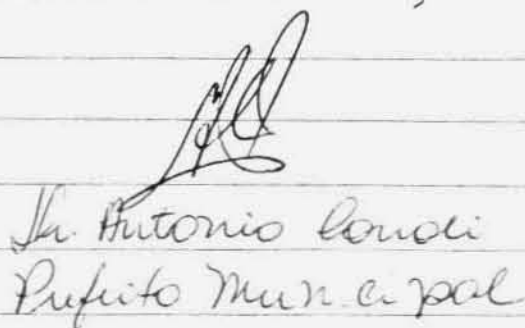 Antonio Condi
Prefeito Municipal